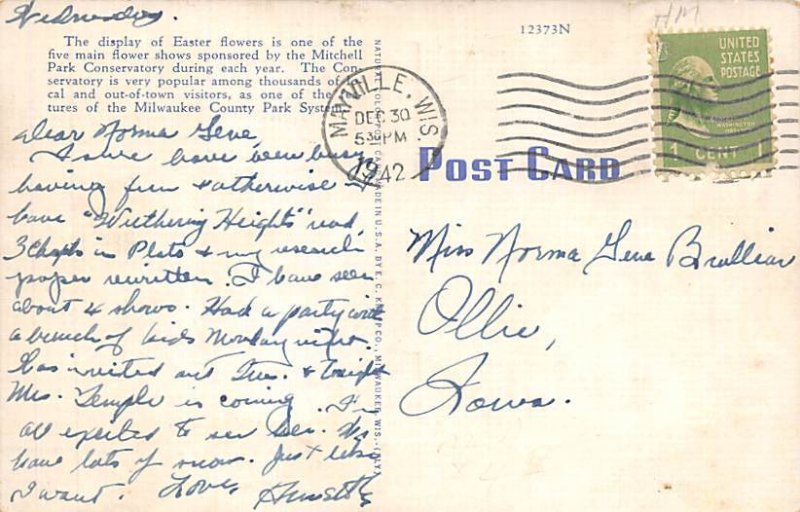 Wednesday.
HM
12373N
The display of Easter flowers is one of the
five main flower shows sponsored by the Mitchell
Park Conservatory during each year. The Con-
servatory is very popular among thousands of lo-
cal and out-of-town visitors, as one of the
tures of the Milwaukee County Park System
Dear Norma Gene,
I sure have been busy
having fun & otherwise I
have "Wuthering Heights" read,
3 Chapts in Plato & my research
paper rewritten. I have seen
about 4 shows. Had a party with
a bunch of kids Monday nite
was invited out Tues. & tonight
Mrs. Temple is coming. I'm
all excited to see her. We
have lots of snow. Just like
I want. Love,
NATURAL COLOR POST CARD MADE IN U.S.A. BY E. C. KROPP CO., MILWAUKEE, WIS.
MAYVILLE, WIS.
DEC 30
530 PM
1942
POST CARD
UNITED
STATES
POSTAGE
WASHINGTON
1 CENT 1
Miss Norma Gene Brallier
Ollie,
Iowa.